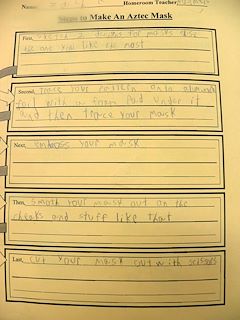 Name:
Homeroom Teacher
Steps to Make An Aztec Mask
First, sketch 2 designs for masks
the one you like the most
Second, trace your pattern onto aluminum
foil with a foam pad under it
and then trace your mask
Next, emboss your mask
Then, smoth your mask out on the
cheaks and stuff like that
Last, cut your mask out with scissors